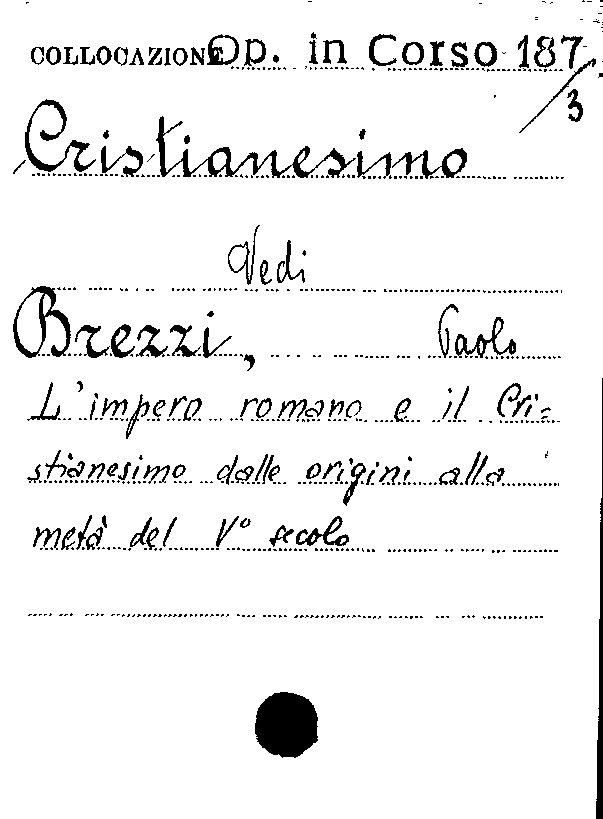 COLLOCAZIONE Op. in Corso 187/3
Cristianesimo
Vedi
Brezzi, Paolo
L'impero romano e il Cri=
stianesimo dalle origini alla
metà del V° secolo